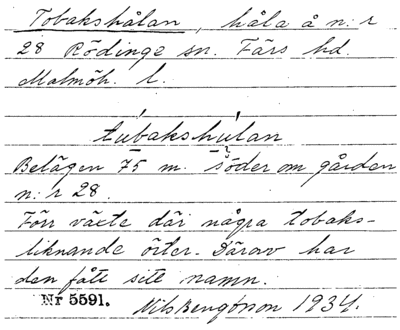 Tobakshålan, håla å n:r
28 Rödinge sn. Färs hd.
Malmöh. l.
túbakshúlan
Belägen 75 m. söder om gården
n:r 28.
Förr växte där några tobaks-
liknande örter. Därav har
den fått sitt namn.
Nr 5591.
Nils Bengtsson 1934.